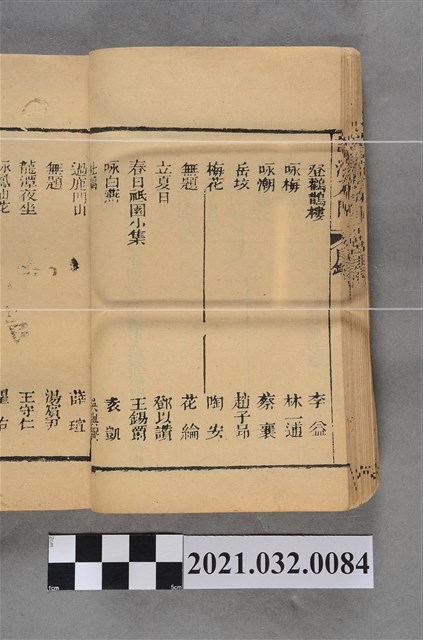 登鸛鵲樓 李益
咏梅 林一逋
咏潮 蔡襄
岳坟 趙子昂
梅花 陶安
無題 花綸
立夏日 鄧以讚
春日祇園小集 王錫爵
咏白燕 袁凱
過鹿門山 薛瑄
無題 湯賓尹
龍潭夜坐 王守仁
咏鳳仙花 瞿佑
目錄
2021.032.0084
1cm
5cm